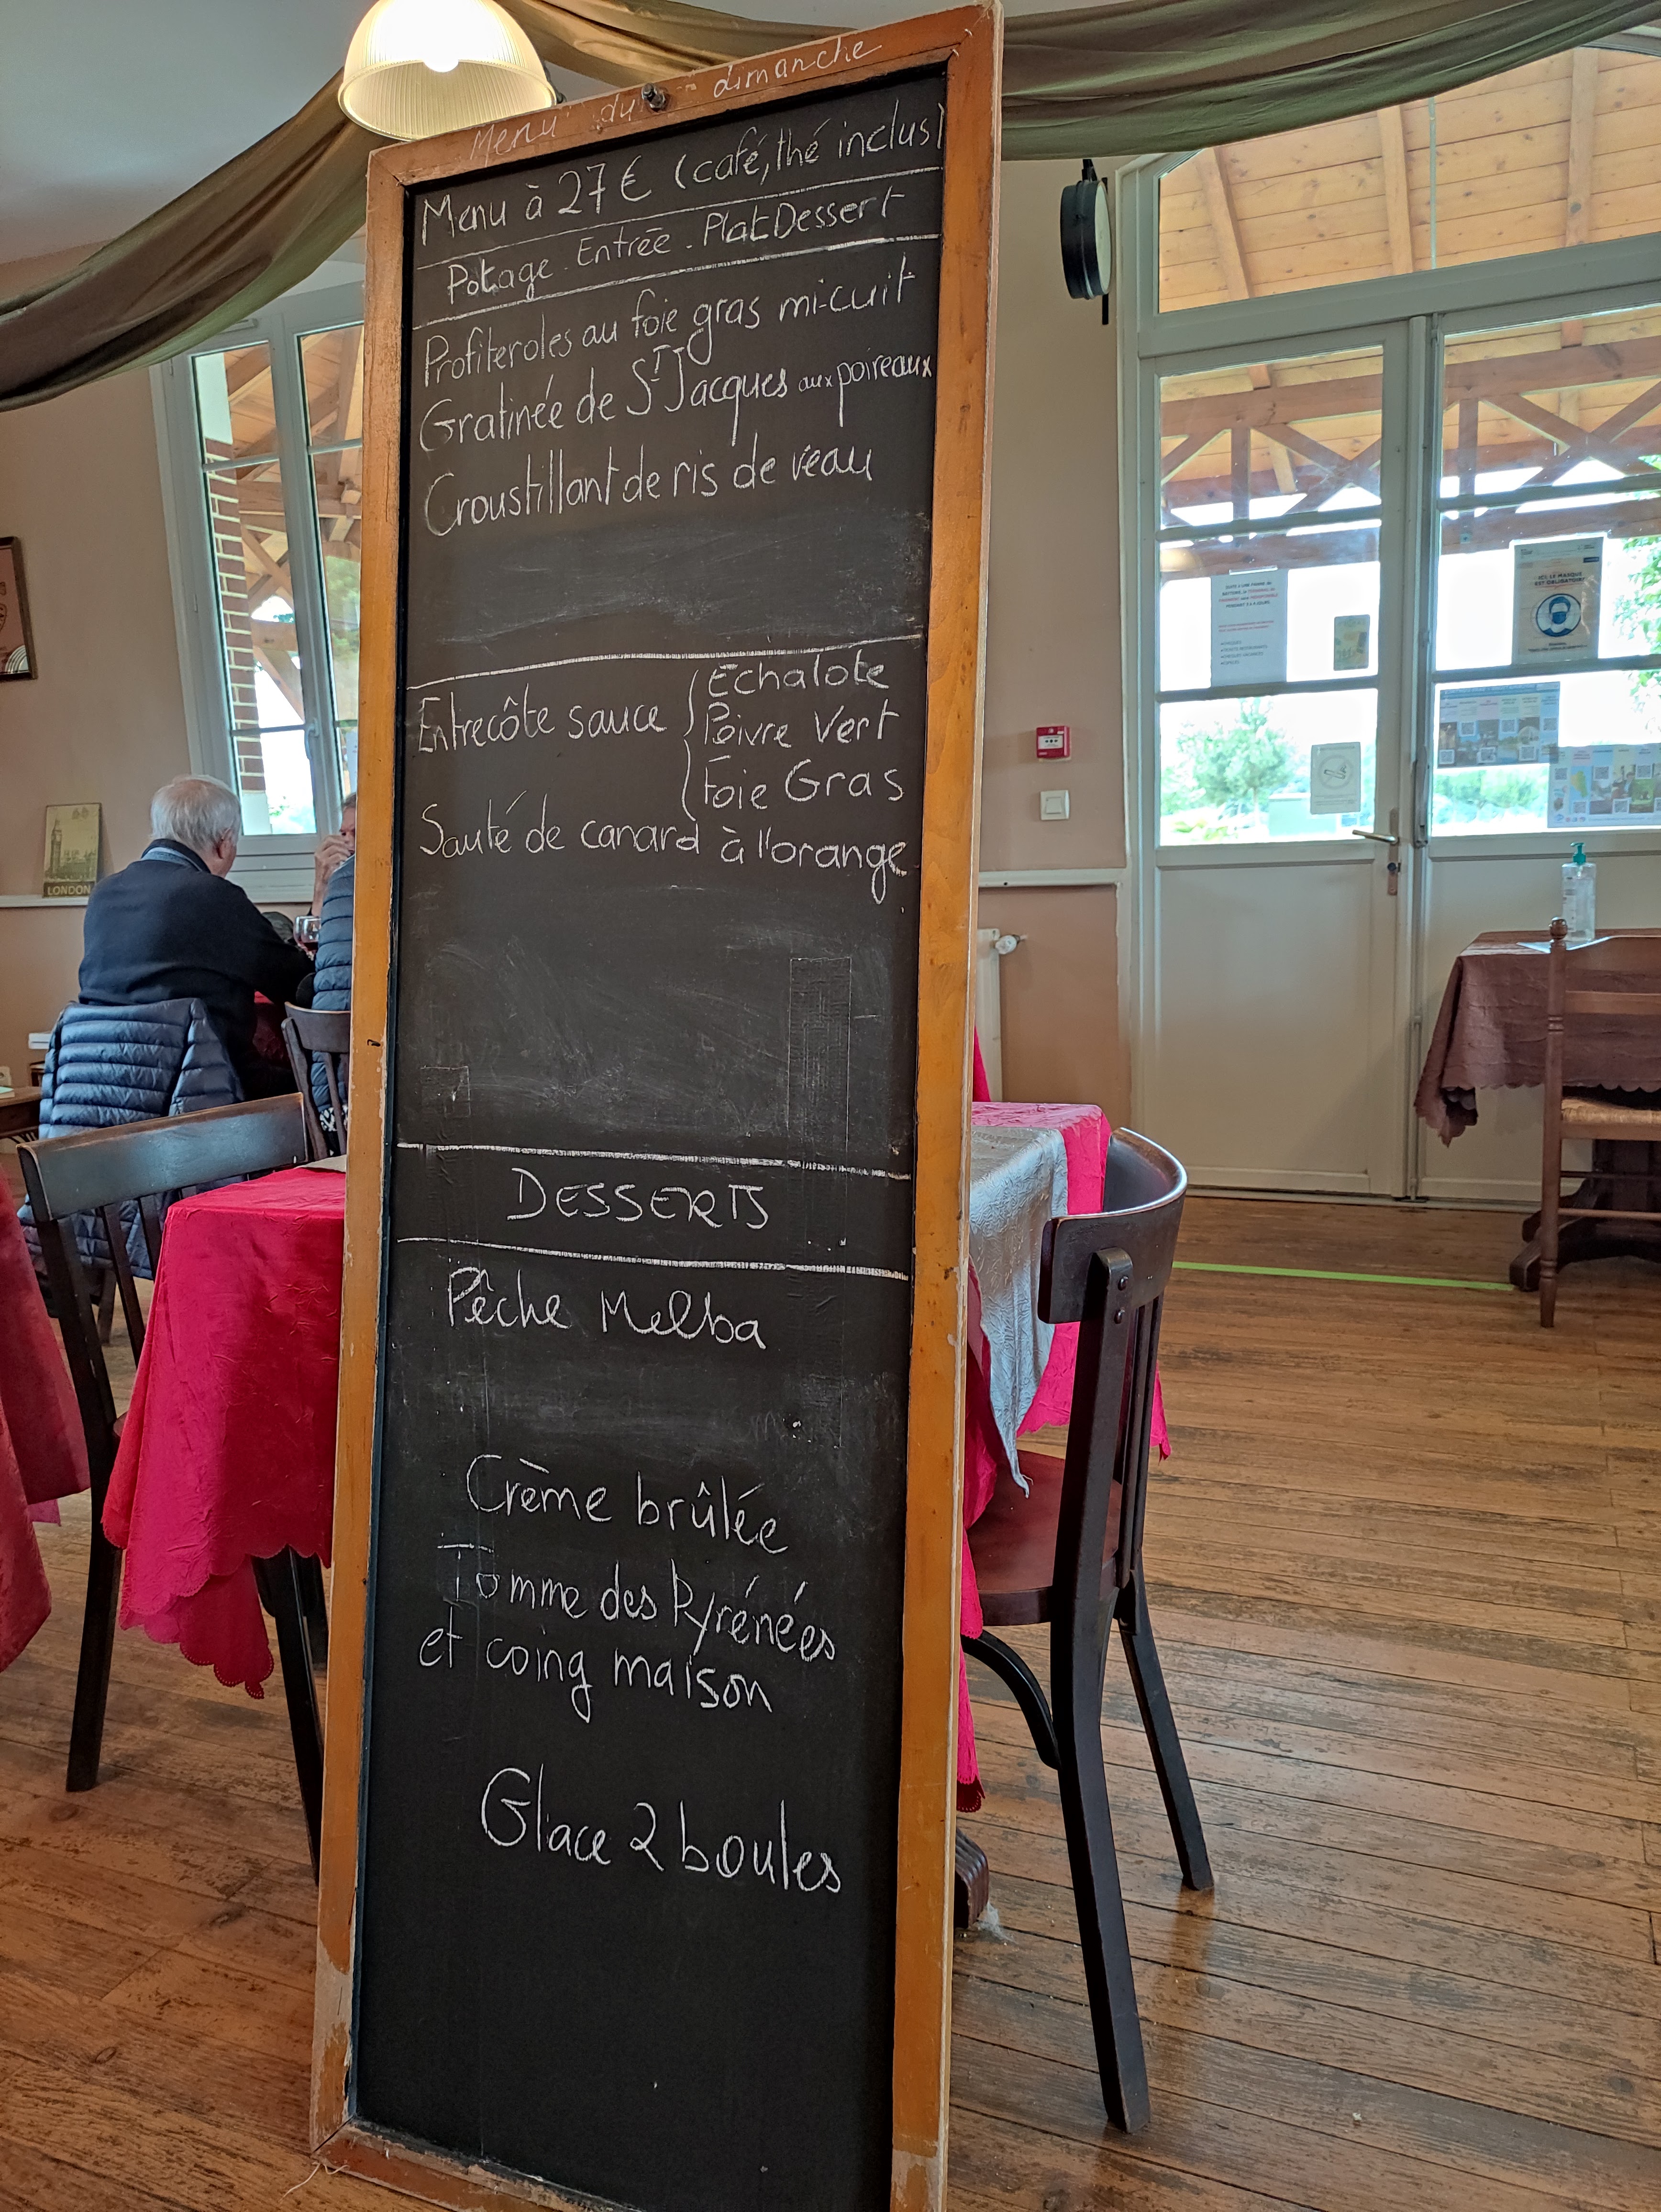 Menu du dimanche
Menu à 27 € (café, thé inclus)
Potage. Entrée. Plat Dessert
Profiteroles au foie gras mi-cuit
Gratinée de St Jacques aux poireaux
Croustillant de ris de veau
Entrecôte sauce { Echalote
Poivre Vert
Foie Gras
Sauté de canard à l'orange
DESSERTS
Pêche Melba
Crème brûlée
Tomme des Pyrénées
et coing maison
Glace 2 boules
LONDON
ICI, LE MASQUE
EST OBLIGATOIRE